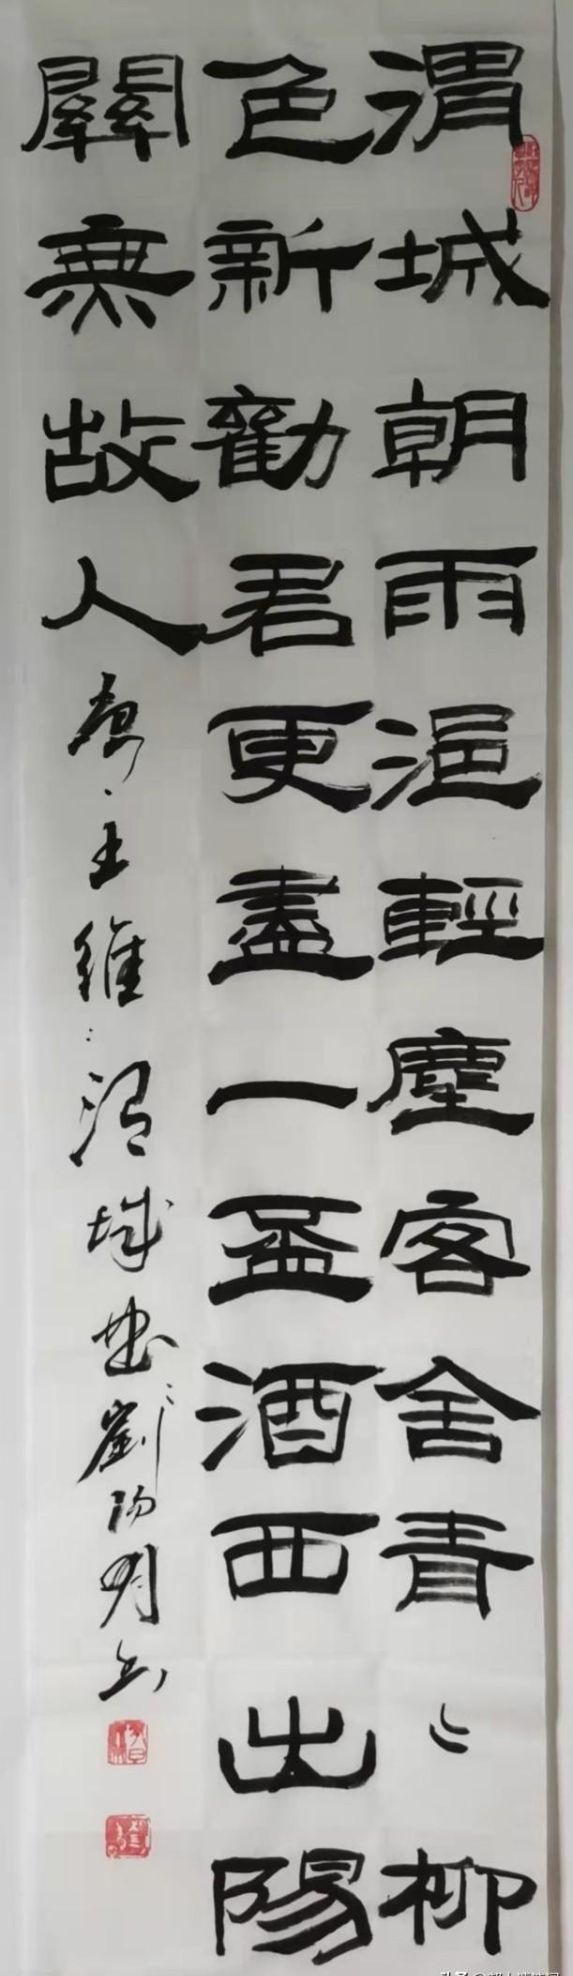 渭城朝雨浥輕塵客舍青〻柳
色新勸君更盡一盃酒西出陽
關無故人
唐王維渭城曲劉陽明书